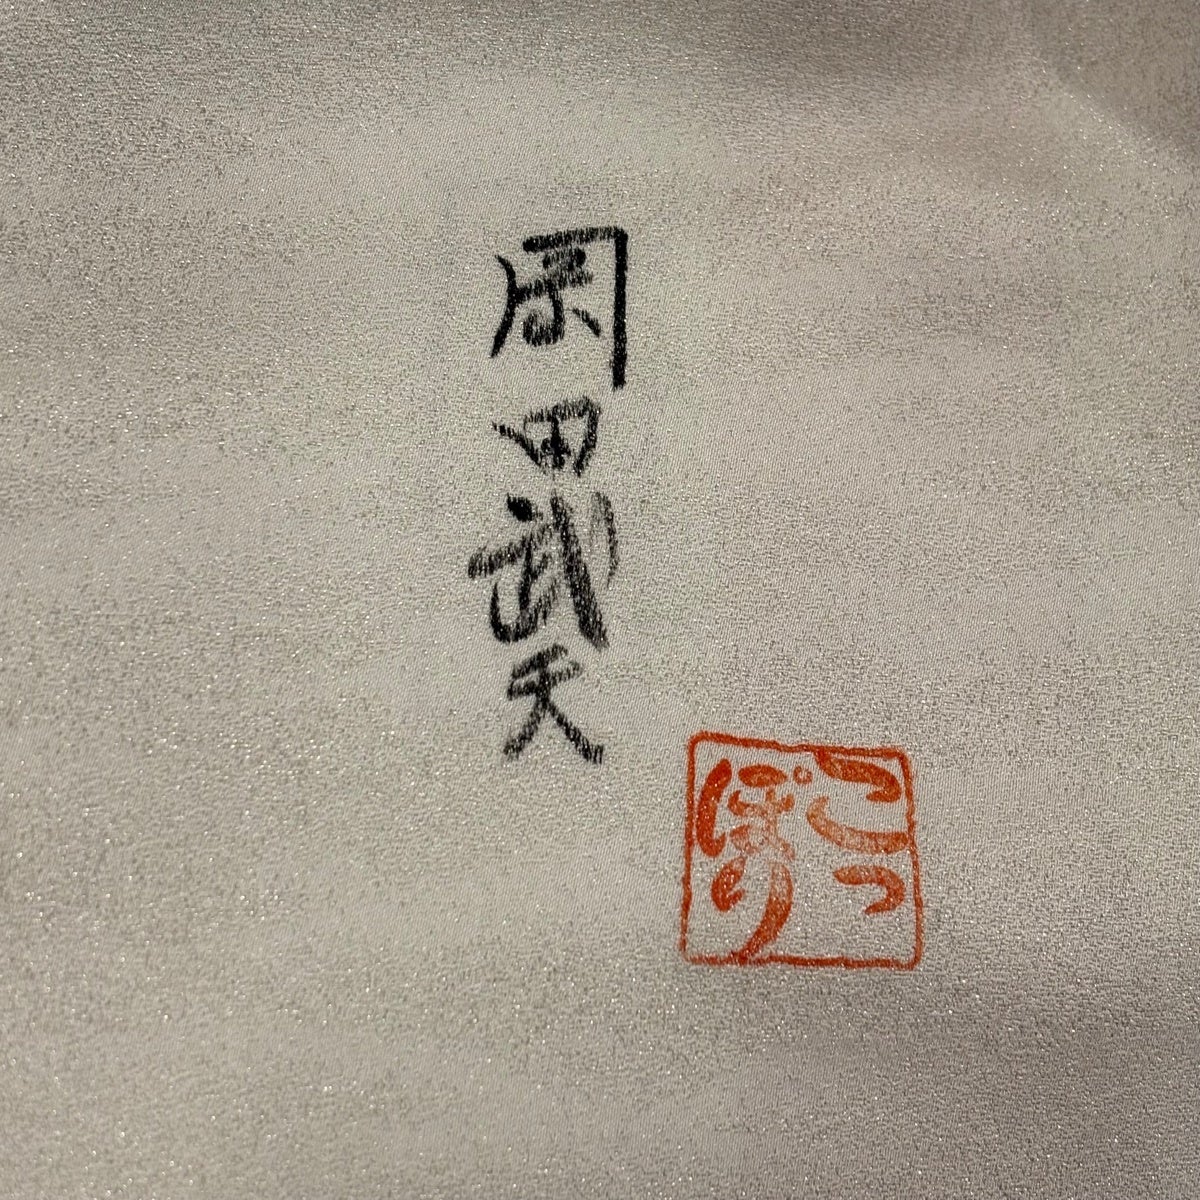 岡田武夫
こっ
ぽり